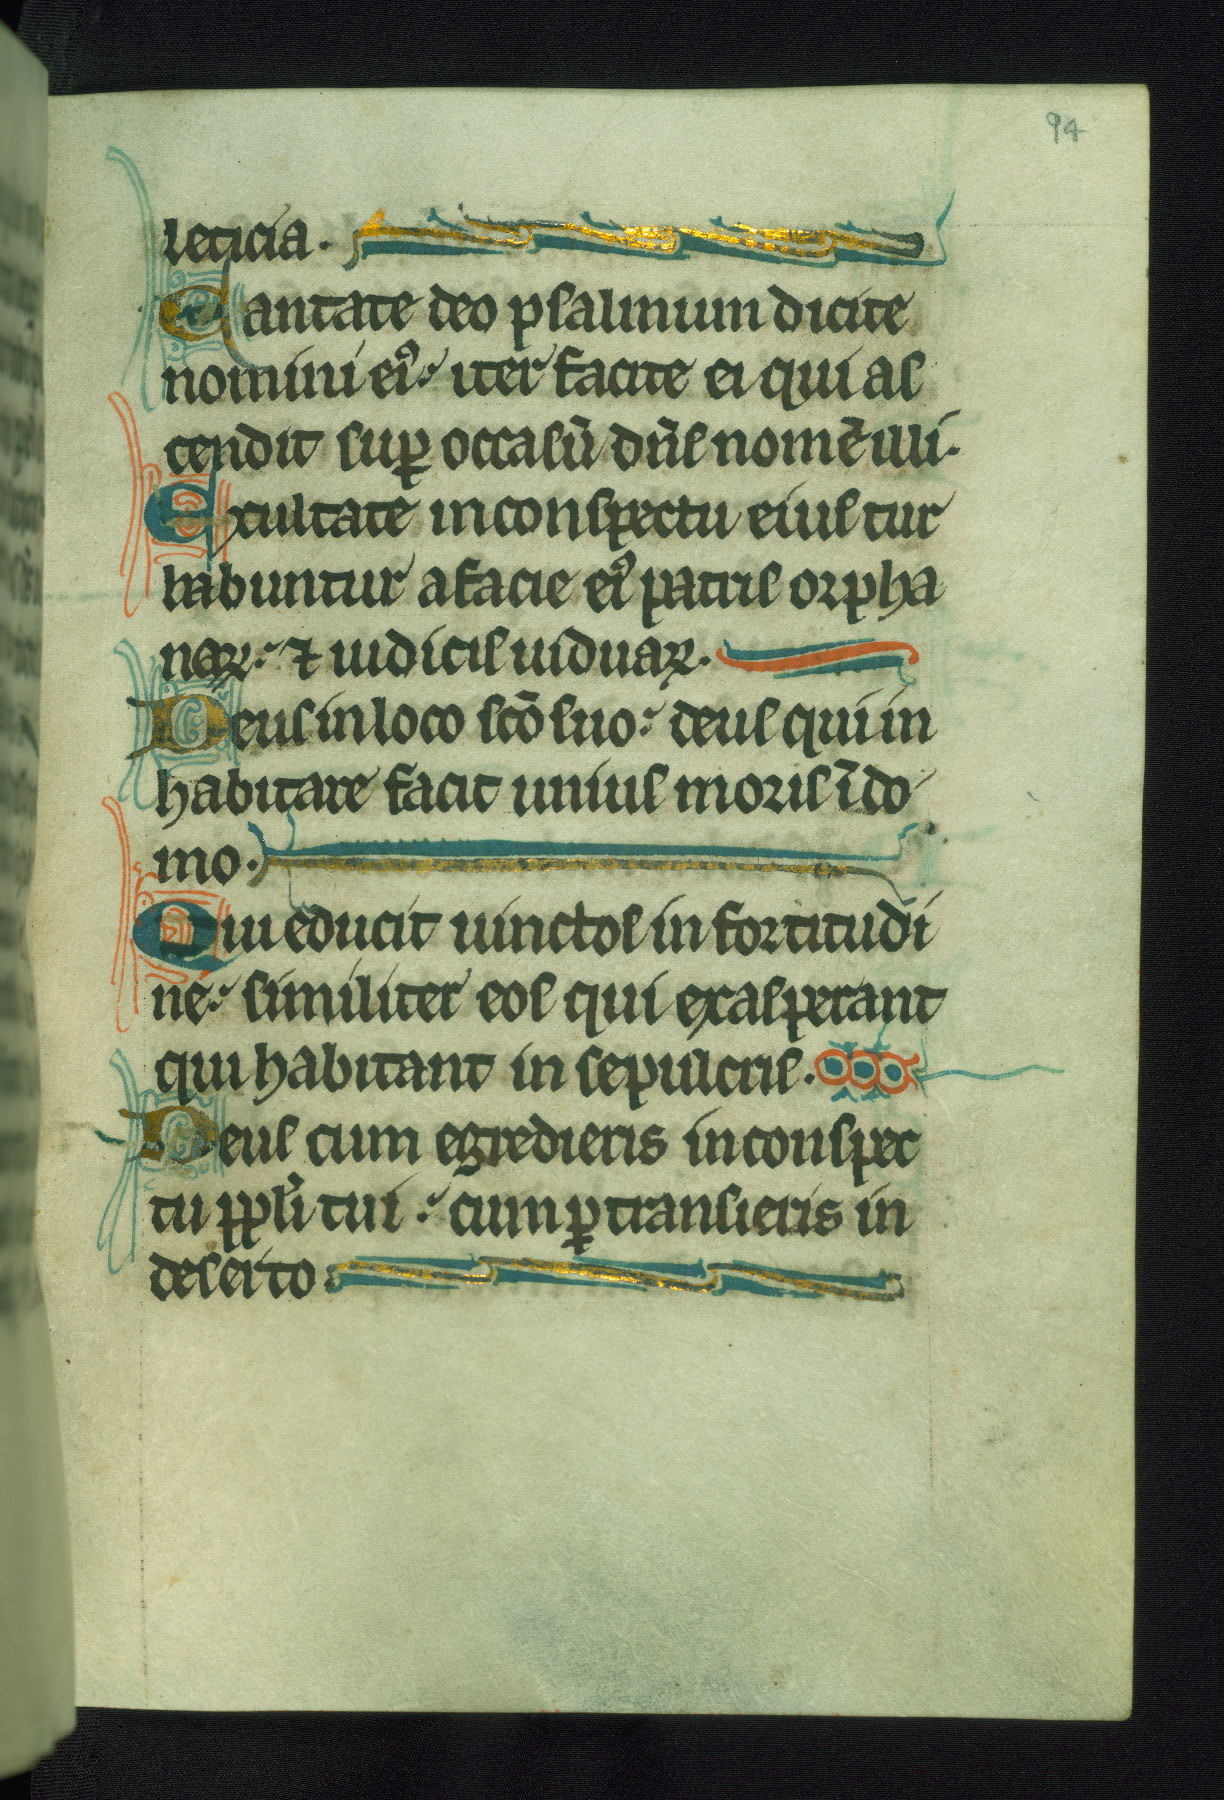 94
leticia.
Cantate deo psalmum dicite
nomini eiꝰ: iter facite ei qui as
cendit suꝑ occasū dn̄s nom̄ illi.
Exultate in conspectu eius tur
babuntur a facie eiꝰ patris orpha
noꝝ: ⁊ iudicis uiduaꝝ.
Deus in loco sc̄o suo: deus qui in
habitare facit unius moris ī do
mo.
Qui educit uinctos in fortitudi
ne: similiter eos qui exasperant
qui habitant in sepulcris.
Deus cum egredieris in conspec
tu ppl̓i tui: cum ꝑtransieris in
deserto